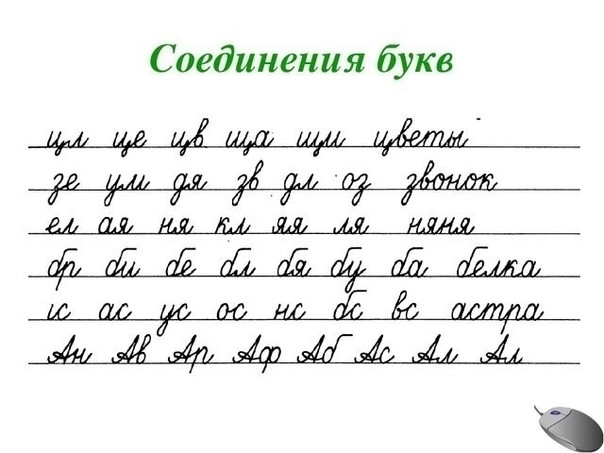 Соединения букв
цл це цв ща щм цветы
зе ум дя зв дл оз звонок
ел ая ня кл яя ля няня
бр би бе бл бя бу ба белка
ас ус ос нс бс вс астра
Ан Ав Ар Аф Аб Ас Ал Ал